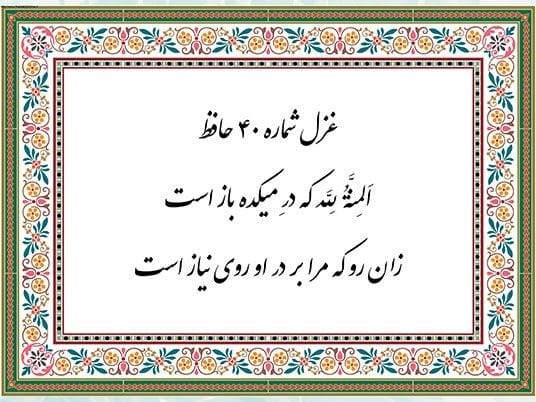 غزل شماره ۴۰ حافظ
اَلمِنَّةُ لِلَّه که درِ میکده باز است
زان رو که مرا بر در او روی نیاز است